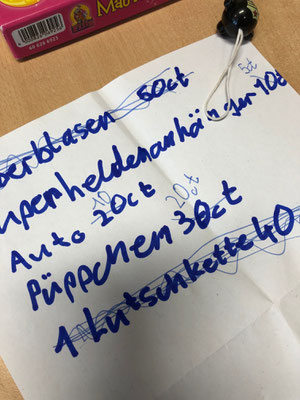 Mau
erblasen 50ct
5ct
uperheldenanhänger 10ct
10
Auto 20ct
20ct
Püppchen 30ct
1 Lutschkette 40